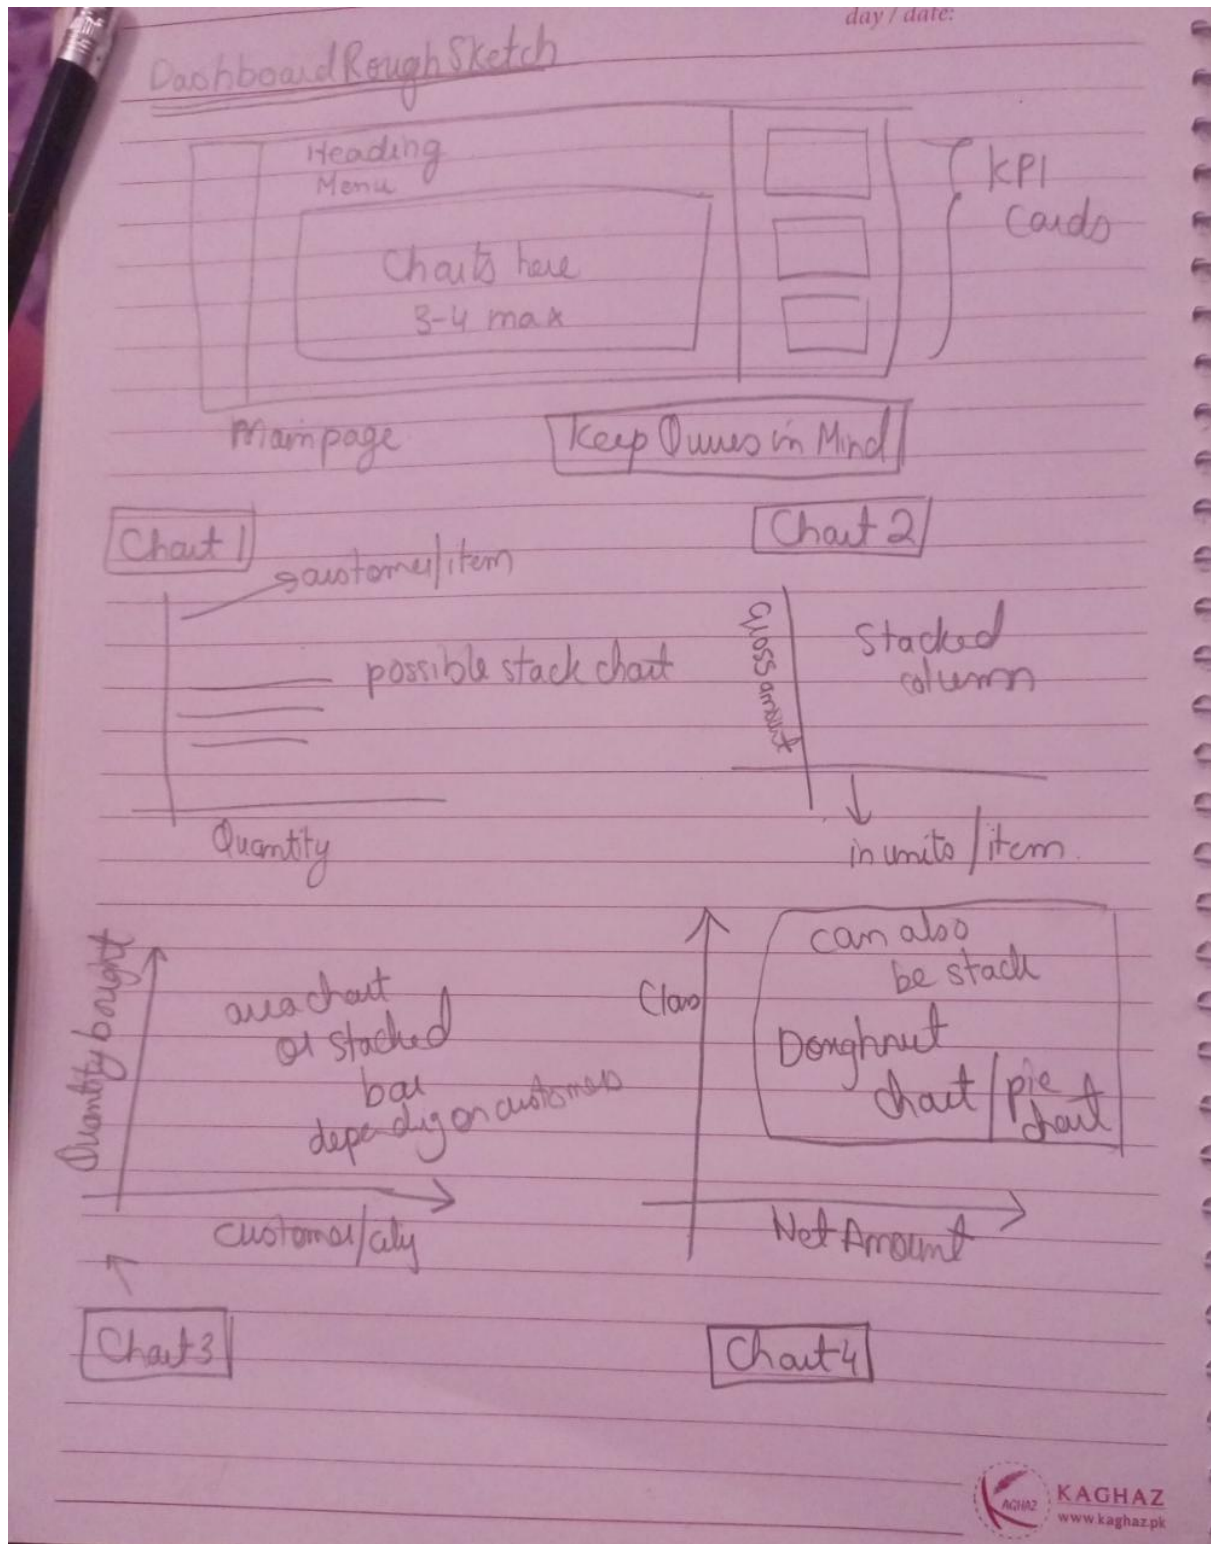 day / date:
Dashboard Rough Sketch
Heading
Menu
Charts here
3-4 max
KPI
Cards
Main page
Keep in Mind
Chart 1
customer/item
possible stack chart
Quantity
Chart 2
Gross amount
Stacked
column
in units/item.
Quantity bought
area chart
or stacked
bar
depending on customers
customer/city
Chart 3
Class
can also
be stack
Doughnut
chart/pie
chart
Net Amount
Chart 4
AGHAZ
KAGHAZ
www.kaghaz.pk